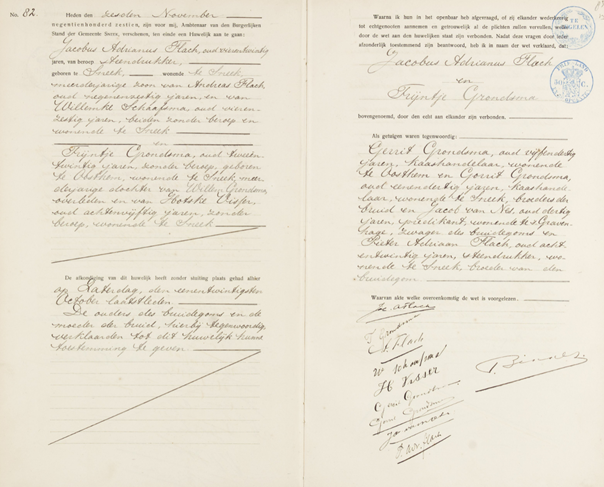 No. 82.
Heden den zesden November
negentienhonderd zestien, zijn voor mij, Ambtenaar van den Burgerlijken
Stand der Gemeente Sneek, verschenen, ten einde een Huwelijk aan te gaan:
Jacobus Adrianus Flach, oud vierentwintig
jaren, van beroep Steendrukker,
geboren te Sneek, wonende te Sneek
meerderjarige zoon van Andreas Flach
oud negenenzestig jaren en van
Willemke Schaafsma oud vieren-
zestig jaren, beiden zonder beroep en
wonende te Sneek
en
Trijntje Grondsma, oud tweeen-
twintig jaren, zonder beroep, geboren
te Oosthem, wonende te Sneek, meer-
derjarige dochter van Willem Grondsma,
overleden en van Hotske Visser,
oud achtenvijftig jaren, zonder
beroep, wonende te Sneek
De afkondiging van dit huwelijk heeft zonder stuiting plaats gehad alhier
op Zaterdag, den eenentwintigsten
October laatstleden.
De ouders des bruidegoms en de
moeder der bruid, hierbij tegenwoordig,
verklaarden tot dit huwelijk hunne
toestemming te geven.
Waarna ik hun in het openbaar heb afgevraagd, of zij elkander wederkeerig
tot echtgenooten aannemen en getrouwelijk al de plichten zullen vervullen, welke
door de wet aan den huwelijken staat zijn verbonden. Nadat deze vragen door ieder
afzonderlijk toestemmend zijn beantwoord, heb ik in naam der wet verklaard, dat:
Jacobus Adrianus Flach
en
Trijntje Grondsma
bovengenoemd, door den echt aan elkander zijn verbonden.
Als getuigen waren tegenwoordig:
Gerrit Grondsma, oud vijfendertig
jaren, kaashandelaar, wonende
te Oosthem en Gorrit Grondsma,
oud eenendertig jaren, kaashande-
laar, wonende te Sneek, broeders der
bruid en Jacob van Nes, oud dertig
jaren, predikant, wonende te 's Graven-
hage, zwager des bruidegoms en
Pieter Adriaan Flach, oud acht-
entwintig jaren, steendrukker, wo-
nende te Sneek, broeder van den
bruidegom.
Waarvan akte welke overeenkomstig de wet is voorgelezen.
T Grondsma
A. Flach
W Schaafsma
H Visser